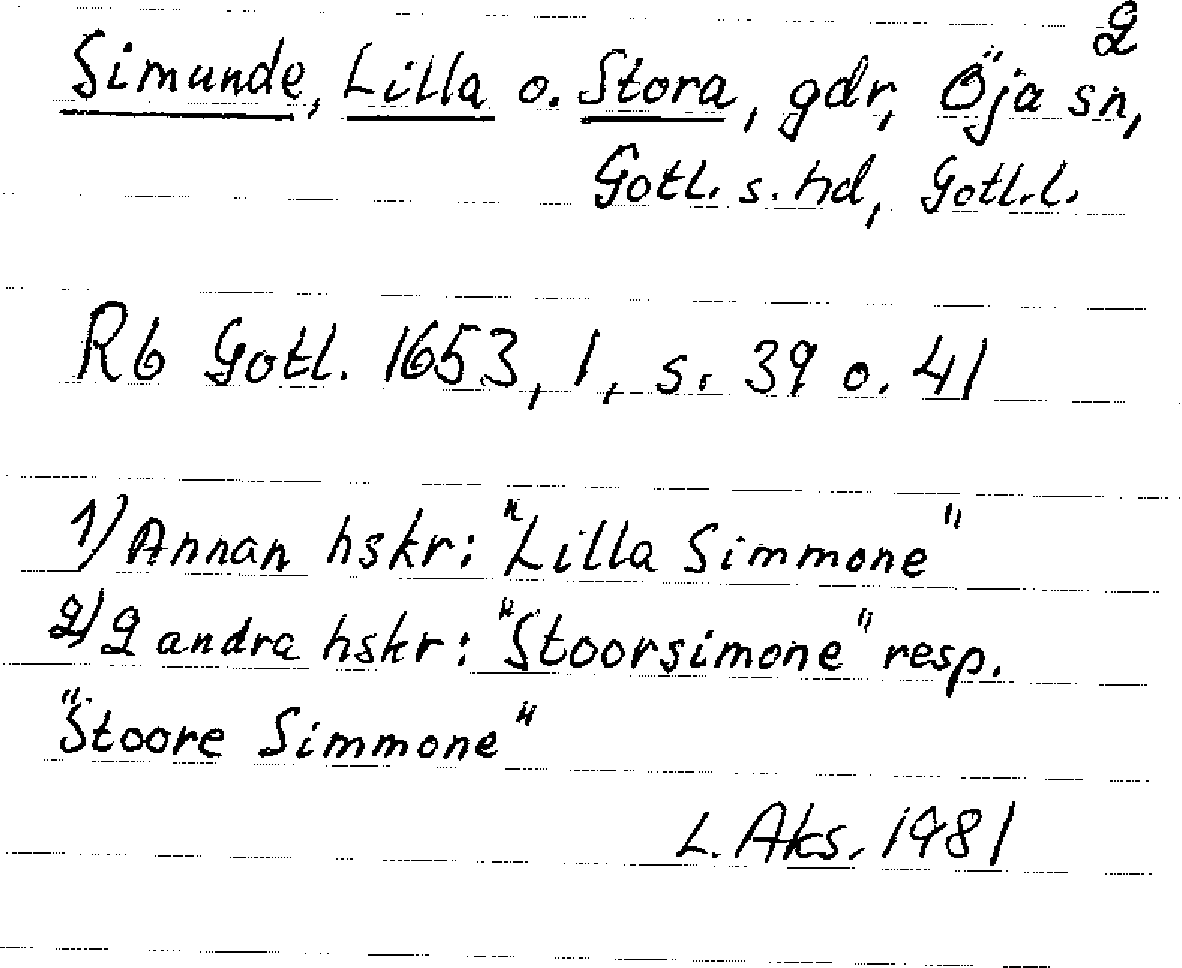 2
Simunde, Lilla o. Stora, gdr, Öja sn,
Gotl. s. hd, Gotl.l.
Rb Gotl. 1653, 1, s. 39 o. 41
1) Annan hskr: "Lilla Simmone"
2) 2 andra hskr: "Stoorsimone" resp.
"Stoore Simmone"
L. Aks. 1981